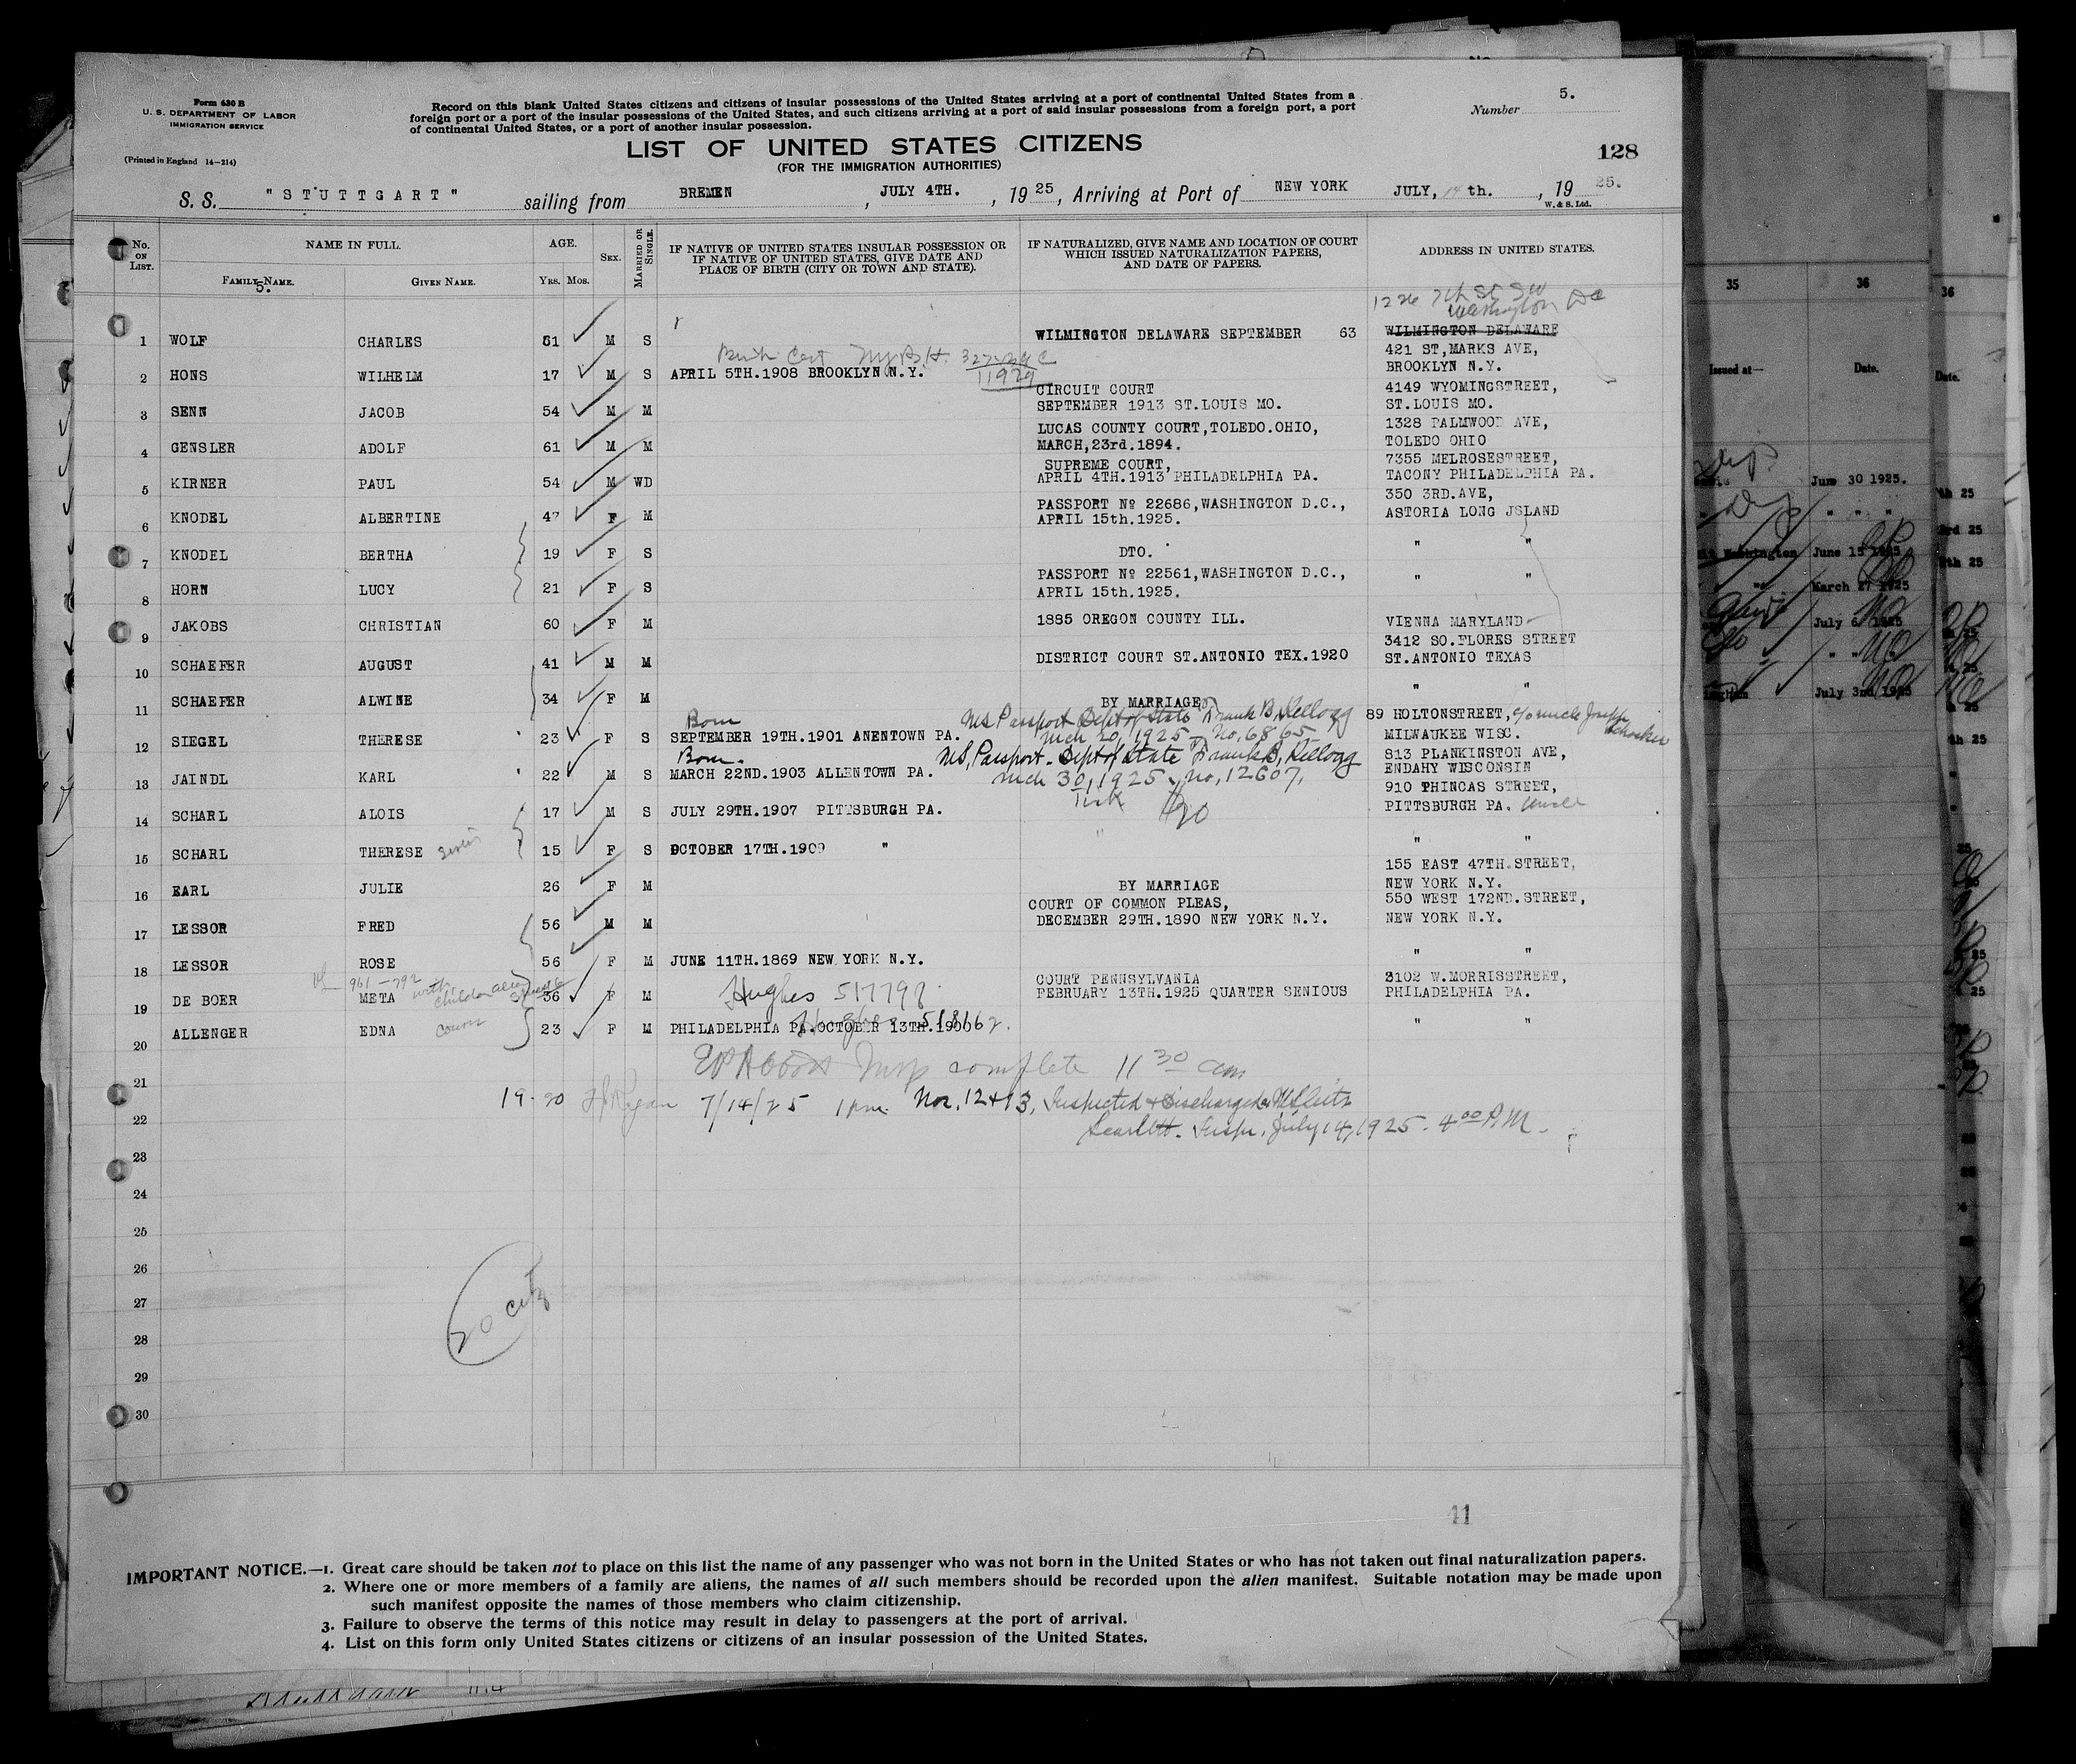 Form 630 B
U. S. DEPARTMENT OF LABOR
IMMIGRATION SERVICE
(Printed in England 14-214)
Record on this blank United States citizens and citizens of insular possessions of the United States arriving at a port of continental United States from a
foreign port or a port of the insular possessions of the United States, and such citizens arriving at a port of said insular possessions from a foreign port, a port
of continental United States, or a port of another insular possession.
Number 5.
LIST OF UNITED STATES CITIZENS
(FOR THE IMMIGRATION AUTHORITIES)
128
S. S. "STUTTGART" sailing from BREMEN, JULY 4TH., 1925, Arriving at Port of NEW YORK JULY, 14th., 1925.
W. & S. Ltd.
No. ON LIST.
NAME IN FULL.
FAMILY NAME.
5.
GIVEN NAME.
AGE.
YRS. MOS.
SEX.
MARRIED OR SINGLE.
IF NATIVE OF UNITED STATES INSULAR POSSESSION OR
IF NATIVE OF UNITED STATES, GIVE DATE AND
PLACE OF BIRTH (CITY OR TOWN AND STATE).
IF NATURALIZED, GIVE NAME AND LOCATION OF COURT
WHICH ISSUED NATURALIZATION PAPERS,
AND DATE OF PAPERS.
ADDRESS IN UNITED STATES.
1226 7th St SW
Washington DC
1 WOLF CHARLES 61 M S WILMINGTON DELAWARE SEPTEMBER 63 WILMINGTON DELAWARE
Birth Cert
421 ST,MARKS AVE,
2 HONS WILHELM 17 M S APRIL 5TH.1908 BROOKLYN N.Y. 11929 BROOKLYN N.Y.
CIRCUIT COURT 4149 WYOMINGSTREET,
3 SENN JACOB 54 M M SEPTEMBER 1913 ST.LOUIS MO. ST.LOUIS MO.
LUCAS COUNTY COURT,TOLEDO.OHIO, 1328 PALMWOOD AVE,
4 GENSLER ADOLF 61 M M MARCH,23rd.1894. TOLEDO OHIO
SUPREME COURT, 7355 MELROSESTREET,
5 KIRNER PAUL 54 M WD APRIL 4TH.1913 PHILADELPHIA PA. TACONY PHILADELPHIA PA.
PASSPORT Nº 22686,WASHINGTON D.C., 350 3RD.AVE,
6 KNODEL ALBERTINE 47 F M APRIL 15th.1925. ASTORIA LONG JSLAND
7 KNODEL BERTHA 19 F S DTO. " "
PASSPORT Nº 22561,WASHINGTON D.C.,
8 HORN LUCY 21 F S APRIL 15th.1925. " "
9 JAKOBS CHRISTIAN 60 F M 1885 OREGON COUNTY ILL. VIENNA MARYLAND
3412 SO.FLORES STREET
10 SCHAEFER AUGUST 41 M M DISTRICT COURT ST.ANTONIO TEX.1920 ST.ANTONIO TEXAS
11 SCHAEFER ALWINE 34 F M BY MARRIAGE " "
Born US Passport Dept of State Frank B, Kellogg 89 HOLTONSTREET, c/o uncle Joseph
12 SIEGEL THERESE 23 F S SEPTEMBER 19TH.1901 ANENTOWN PA. Mch 20, 1925 No, 6865 MILWAUKEE WISC.
Born. US, Passport - Dept of State Frank B, Kellogg 813 PLANKINSTON AVE,
13 JAINDL KARL 22 M S MARCH 22ND.1903 ALLENTOWN PA. Mch 30, 1925 No, 12607, ENDAHY WISCONSIN
910 PHINCAS STREET,
14 SCHARL ALOIS 17 M S JULY 29TH.1907 PITTSBURGH PA. PITTSBURGH PA. uncle
15 SCHARL THERESE sister 15 F S OCTOBER 17TH.1909 " " "
155 EAST 47TH.STREET,
16 EARL JULIE 26 F M BY MARRIAGE NEW YORK N.Y.
COURT OF COMMON PLEAS, 550 WEST 172ND.STREET,
17 LESSOR FRED 56 M M DECEMBER 29TH.1890 NEW YORK N.Y. NEW YORK N.Y.
18 LESSOR ROSE 56 F M JUNE 11TH.1869 NEW YORK N.Y. " "
961-792 with children alien COURT PENNSYLVANIA 3102 W.MORRISSTREET,
19 DE BOER META 36 F M Hughes 517798 FEBRUARY 13TH.1925 QUARTER SENIOUS PHILADELPHIA PA.
20 ALLENGER EDNA cousin 23 F M PHILADELPHIA PA.OCTOBER 13TH.1900 518162. " "
Insp complete 11 30 am
21
19-20 7/14/25 1 pm. Nos. 12+13, Inspected + Discharged
22
Inspr. July 14, 1925. 4 00 P.M.
23
24
25
26
27
28
29
30
20 citz
41
IMPORTANT NOTICE.—1. Great care should be taken not to place on this list the name of any passenger who was not born in the United States or who has not taken out final naturalization papers.
2. Where one or more members of a family are aliens, the names of all such members should be recorded upon the alien manifest. Suitable notation may be made upon
such manifest opposite the names of those members who claim citizenship.
3. Failure to observe the terms of this notice may result in delay to passengers at the port of arrival.
4. List on this form only United States citizens or citizens of an insular possession of the United States.
35 36 36
Issued at— Date. Date.
June 30 1925.
" " "
Washington June 15 1925
March 27 1925
July 6 1925
July 3rd 1925